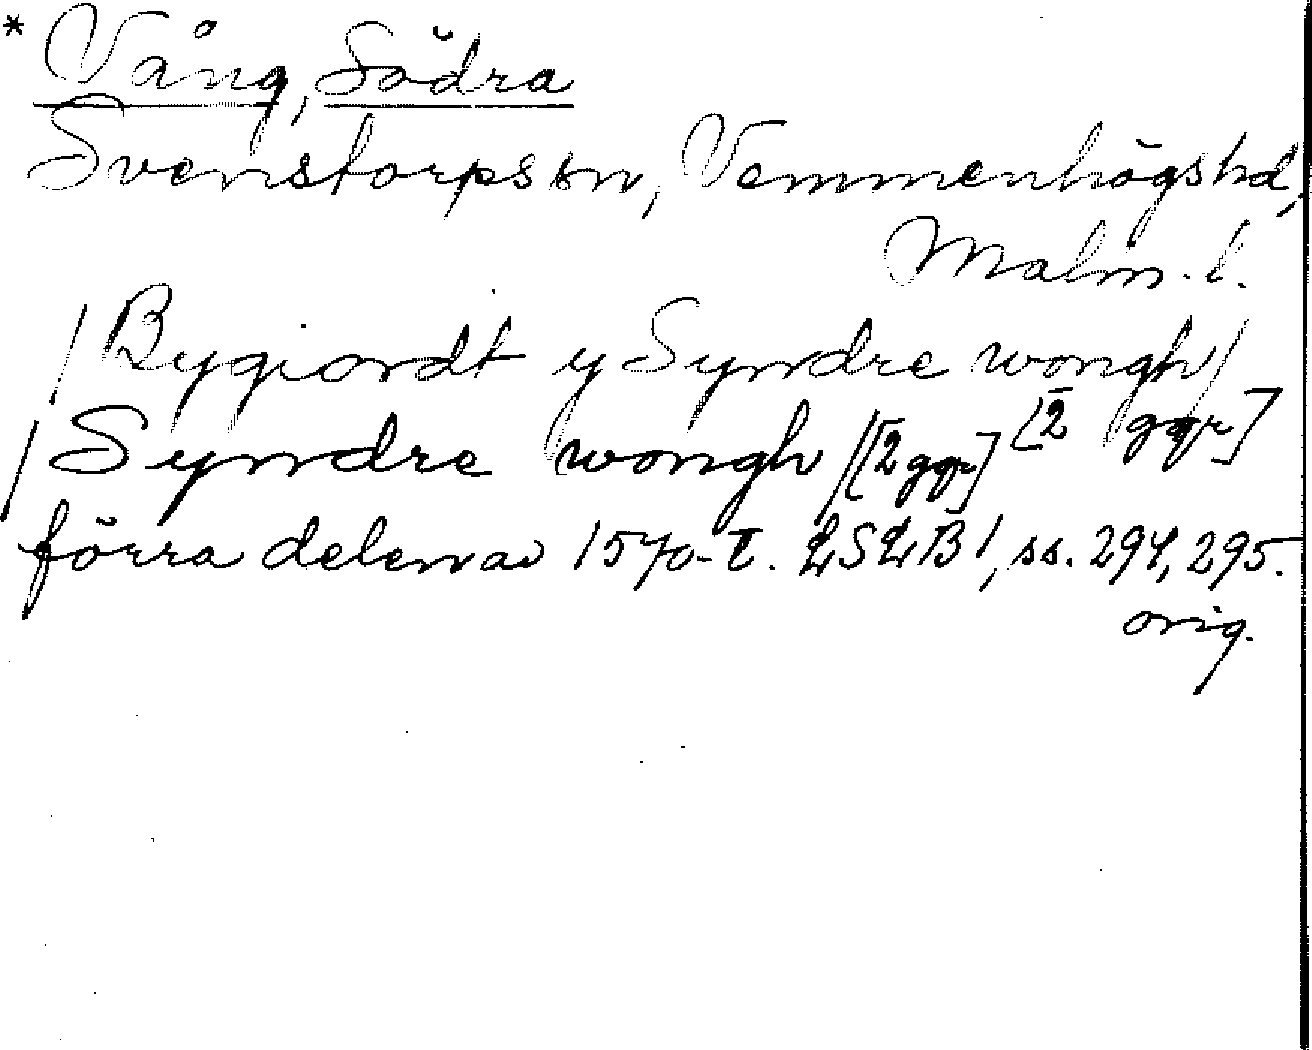 * Vång, Södra
Svenstorps sn, Vemmenhögs hd,
Malm. l.
/Bygiordt y Syndre wongh/
[2 ggr]
/Syndre wongh/[2 ggr]
förra delen av 1570-t. LSLB 1, ss. 294, 295.
orig.